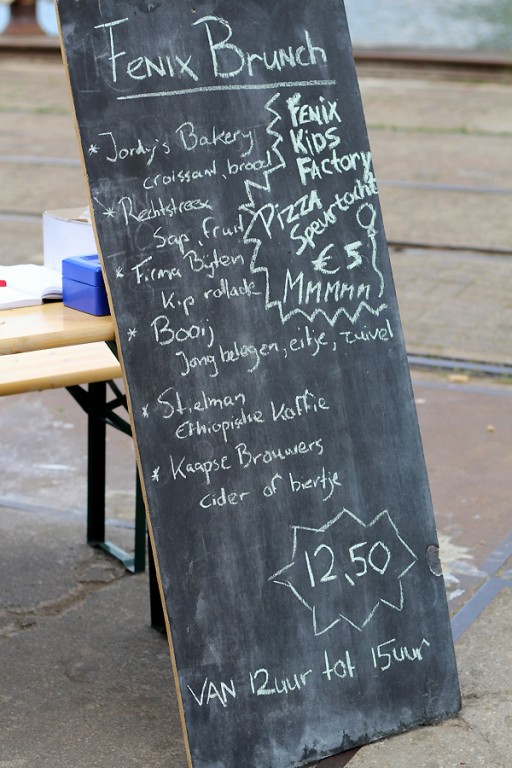 Fenix Brunch
* Jordy's Bakery
croissant, brood
* Rechtstreex
Sap, fruit
* Firma Bijten
Kip rollade
* Booij
Jong belegen, eitje, zuivel
* Stielman
Ethiopische Koffie
* Kaapse Brouwers
cider of biertje
FENIX
KIDS
FACTORY
PIZZA
Speurtocht
€5
Mmmmm
12,50
VAN 12uur tot 15uur